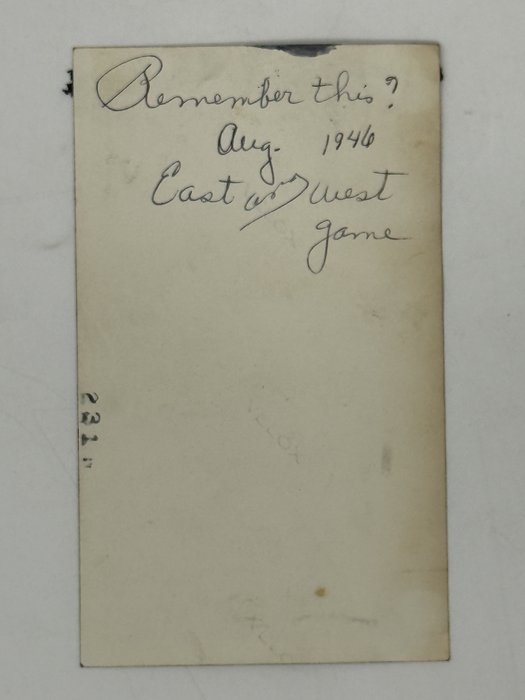 Remember this?
Aug. 1946
East and West
game